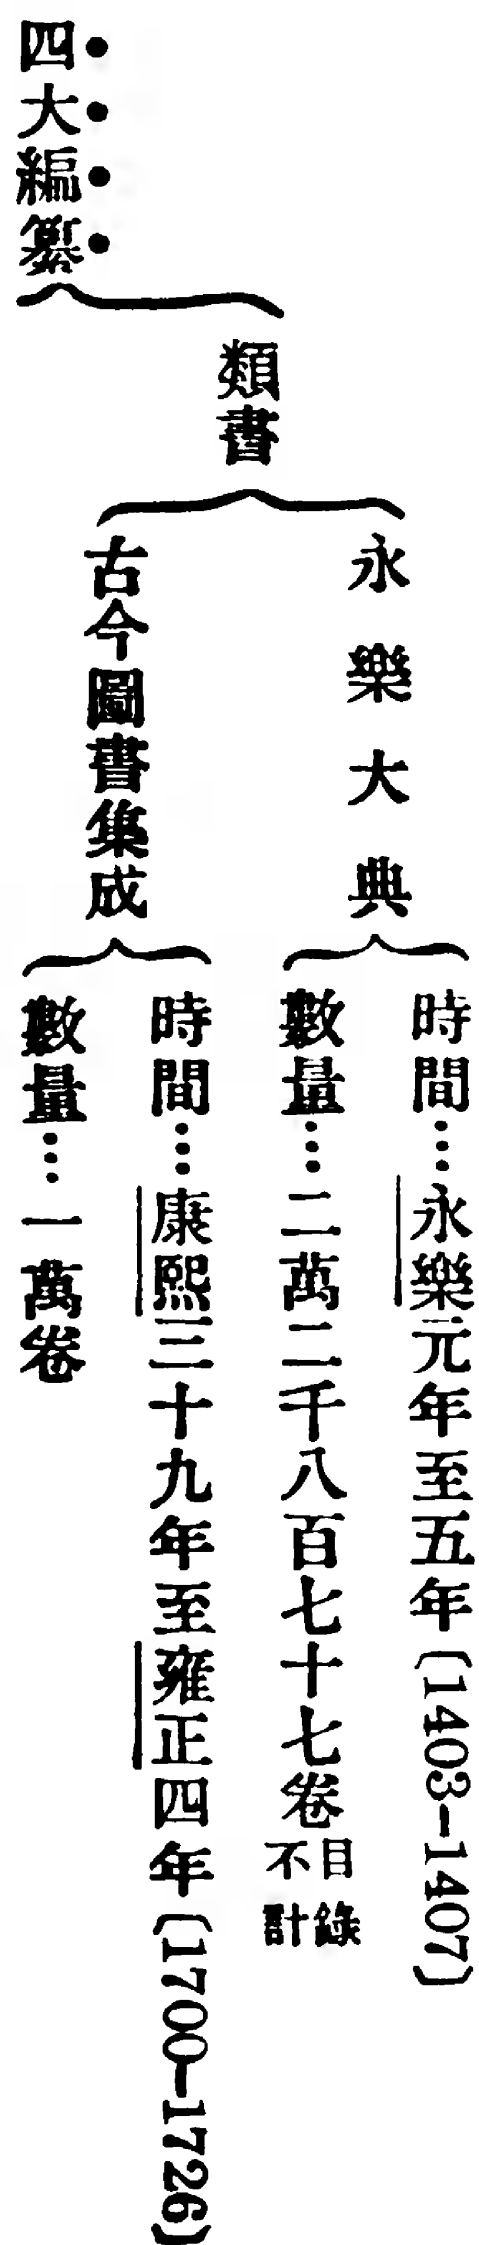 四大編纂
類書
永樂大典
時間…永樂元年至五年〔1403-1407〕
數量…二萬二千八百七十七卷目錄不計
古今圖書集成
時間…康熙三十九年至雍正四年〔1700-1726〕
數量…一萬卷